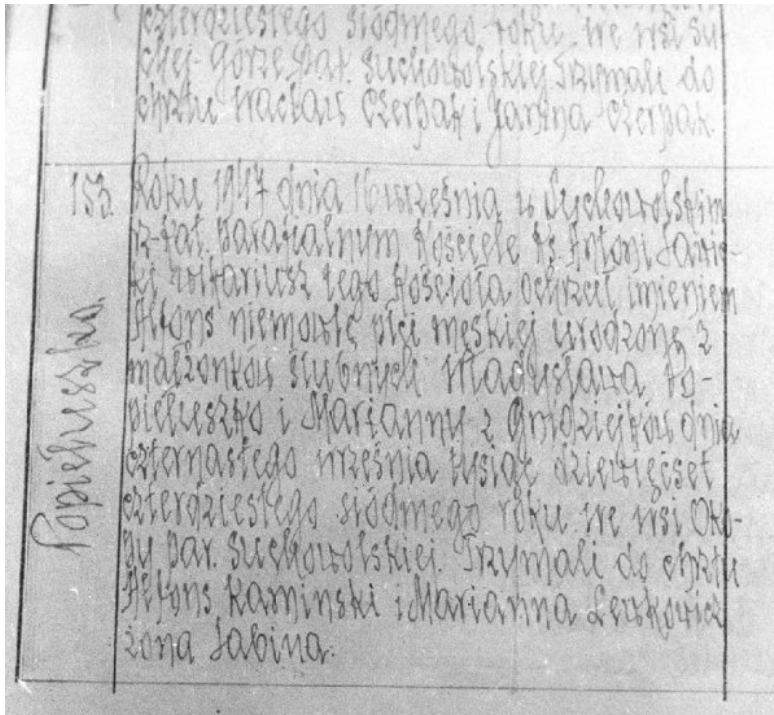 czterdziestego siódmego roku we wsi Su-
chej-Górze par. Suchowolskiej. Trzymali do
chrztu Wacław Czerpak i Janina Czerpak.
153. Roku 1947 dnia 16 września w Suchowolskim
rz-kat. parafialnym Kościele Ks. Antoni
ki wikariusz tego Kościoła ochrzcił imieniem
Alfons niemowlę płci męskiej urodzone z
małżonków ślubnych Władysława Po-
piełuszko i Marianny z Gniedziejków dnia
czternastego września tysiąc dziewięćset
czterdziestego siódmego roku we wsi Oko-
py par. Suchowolskiej. Trzymali do chrztu
Alfons Kaminski i Marianna
żona Sabina.
Popiełuszko.